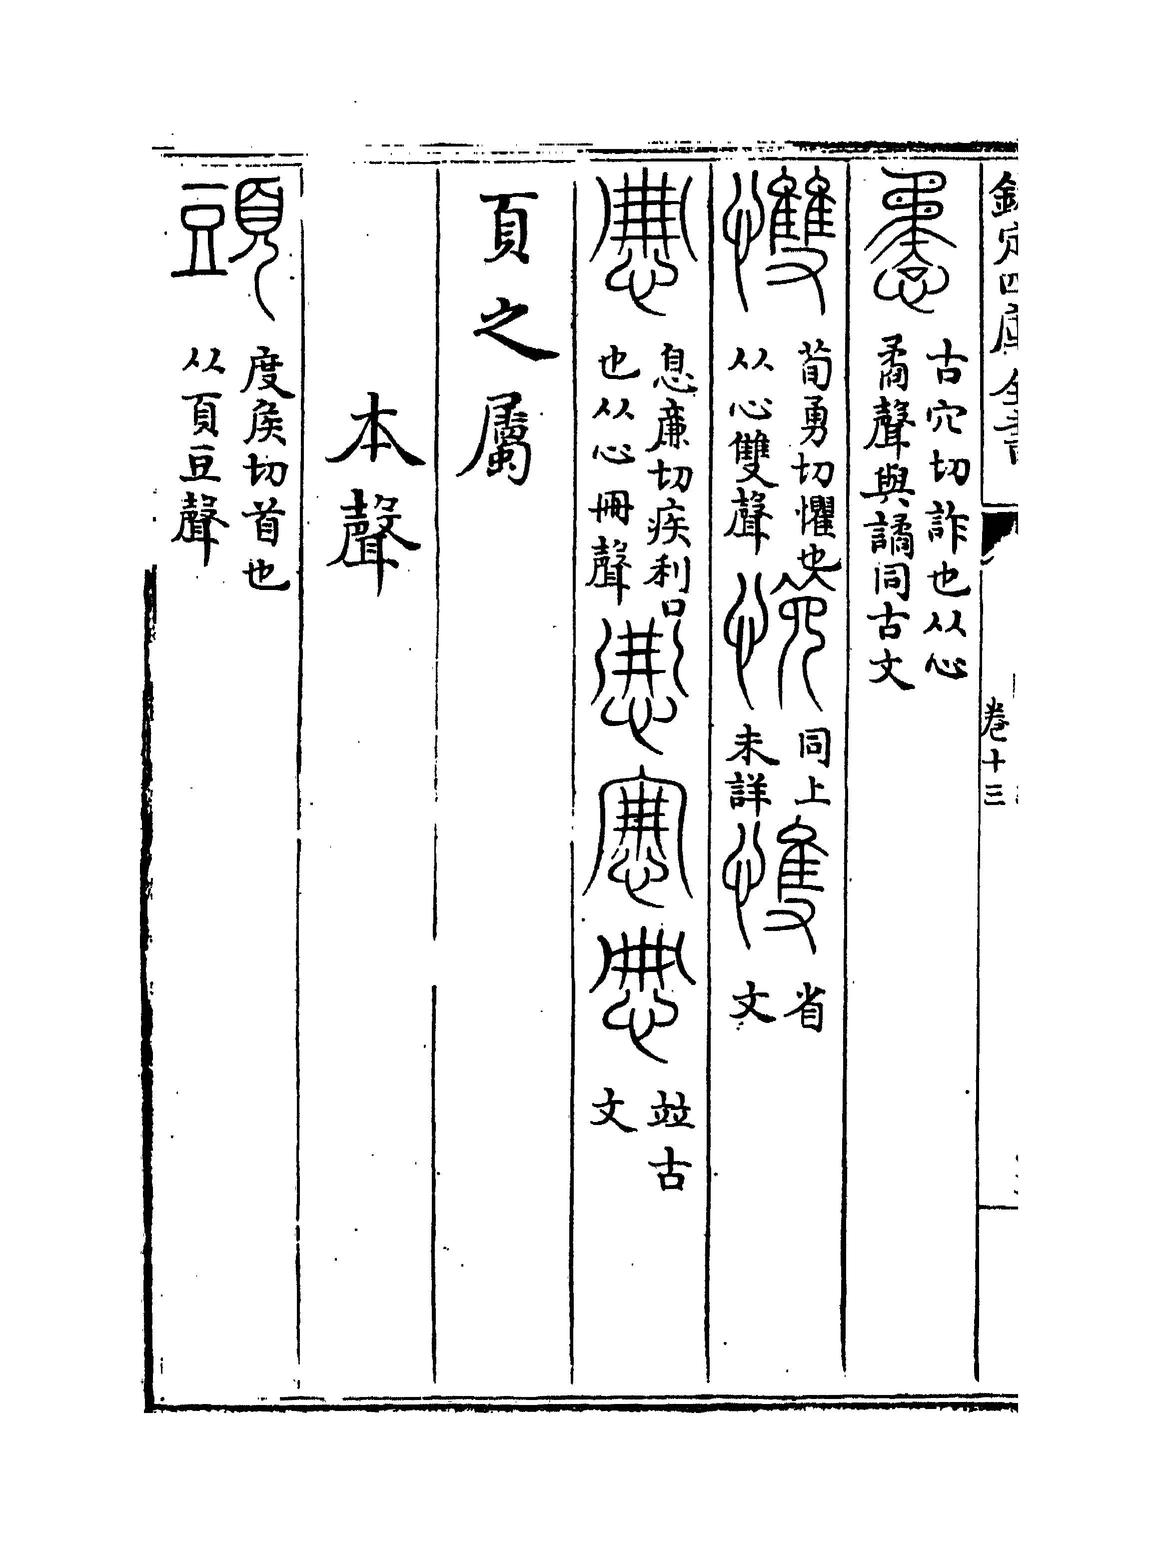 欽定四庫全書
卷十三
古穴切詐也从心
矞聲與譎同古文
㩳荀勇切懼也
从心雙聲
同上
未詳
省
文
息廉切疾利口
也从心冊聲
竝古
文
頁之屬
本聲
頭度矦切首也
从頁豆聲